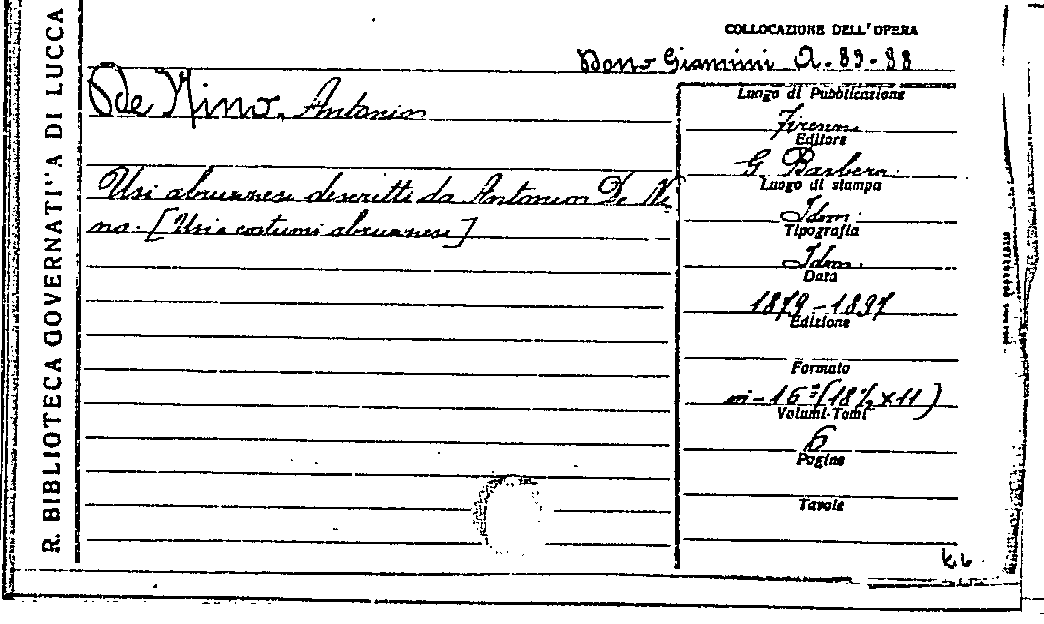 R. BIBLIOTECA GOVERNATI"A DI LUCCA
COLLOCAZIONE DELL'OPERA
Dono Giannini A-83-88
De Nino, Antonio
Usi abruzzesi descritti da Antonio De Ni
no. [Usi e costumi abruzzesi]
Luogo di Pubblicazione
Firenze
Editore
G. Barbera
Luogo di stampa
Idem
Tipografia
Idem
Data
1879-1897
Edizione
Formato
in-16° (18½ x 11)
Volumi-Tomi
6
Pagine
Tavole